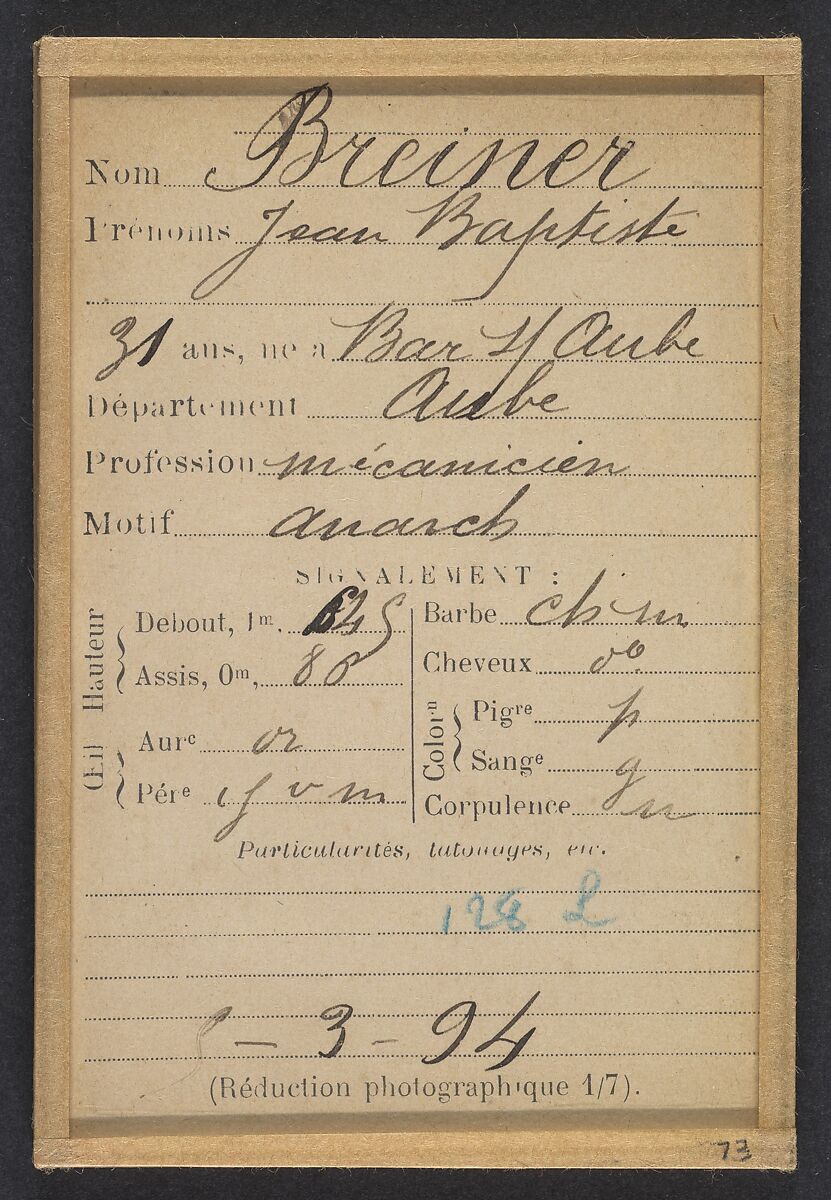 Nom Breiner
Prénoms Jean Baptiste
31 ans, né à Bar s/ Aube
Département Aube
Profession mécanicien
Motif anarch
SIGNALEMENT :
Hauteur
Debout, 1m,
Assis, 0m, 88
Œil
Aure or
Pére v m
Barbe ch m
Cheveux do
Colorn
Pigre p
Sange g
Corpulence m
Particularités, tatouages, etc.
128 L
5-3-94
(Réduction photographique 1/7).
73